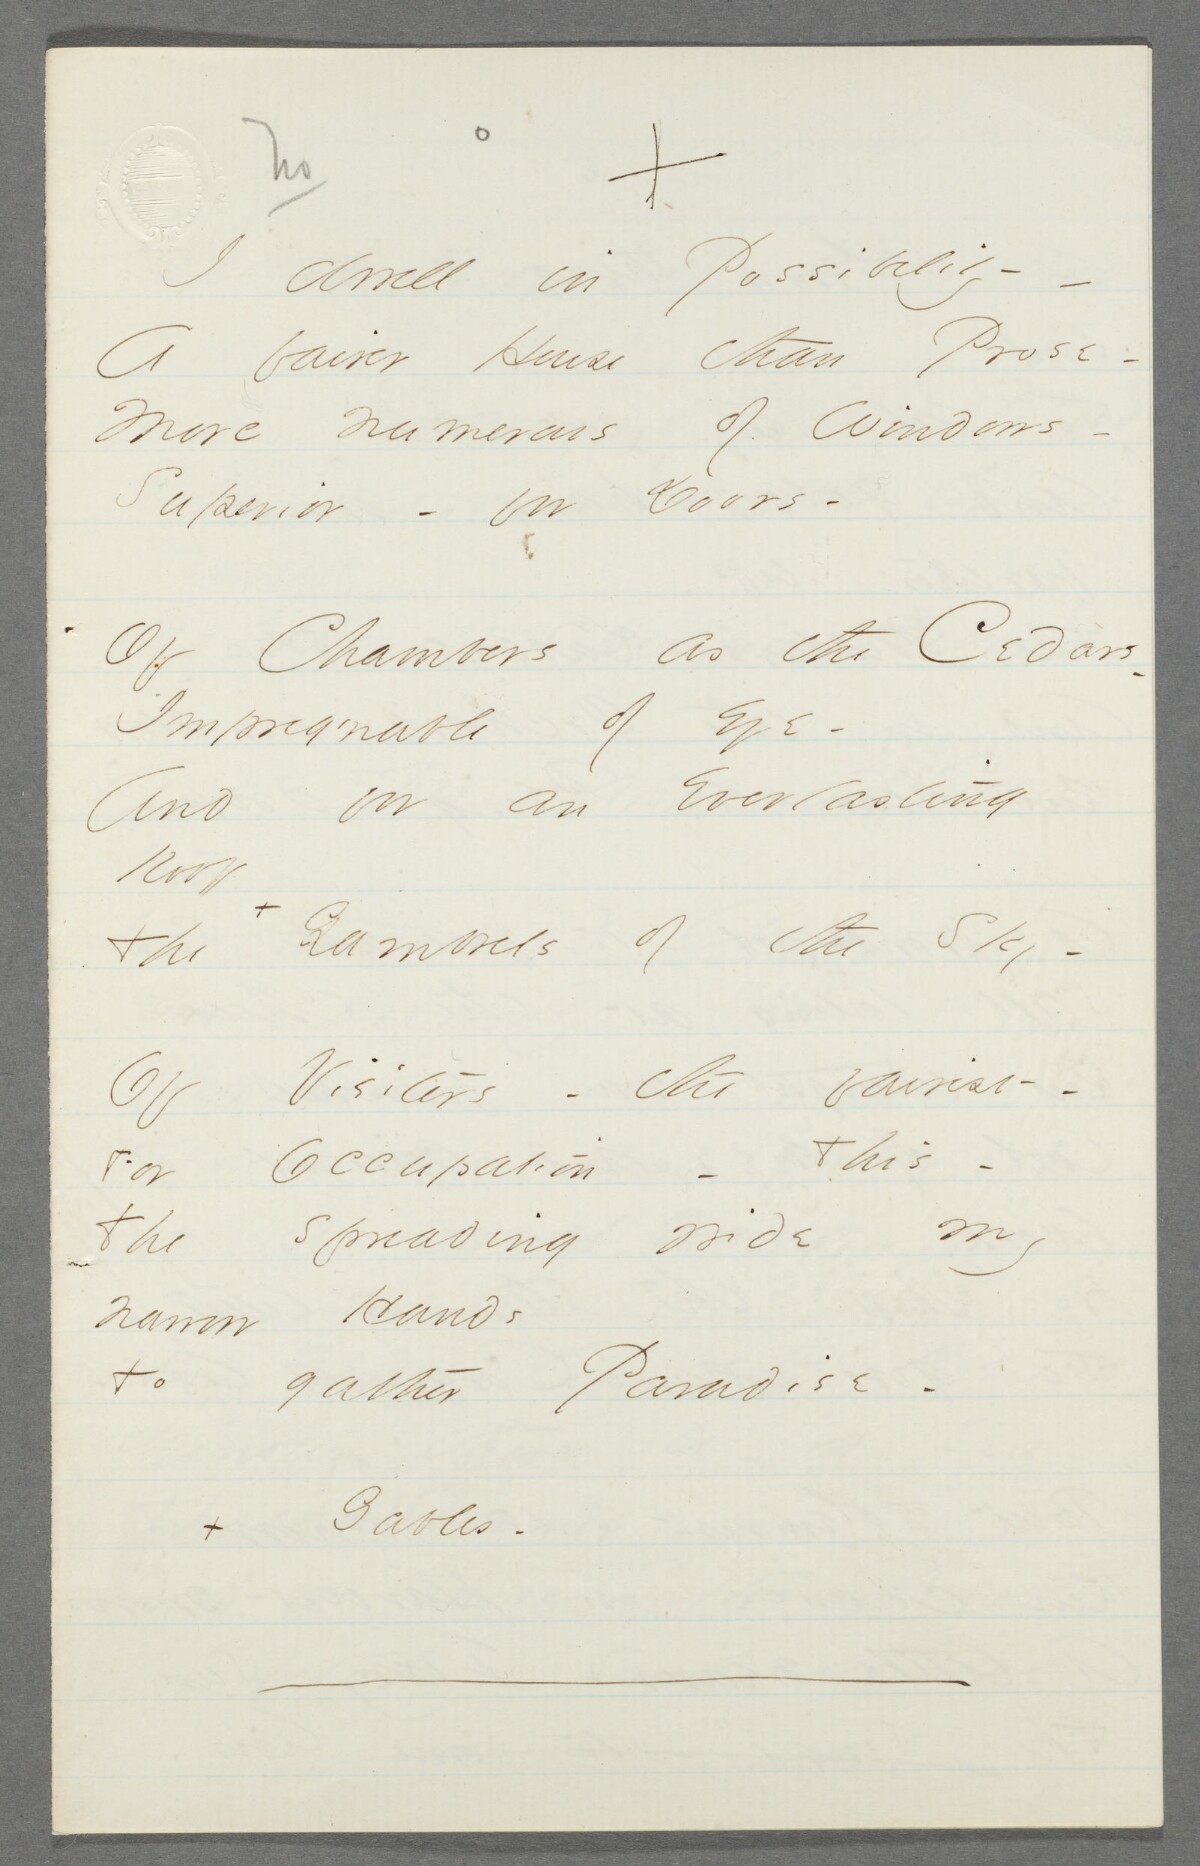 No
+
I dwell in Possibility -
A fairer House than Prose -
More numerous of Windows -
Superior - for Doors -
Of Chambers as the Cedars -
Impregnable of Eye -
And for an Everlasting
Roof
The + Gambrels of the Sky -
Of Visiters - the fairest -
For Occupation - This -
The spreading wide my
narrow Hands
To gather Paradise -
+ Gables -